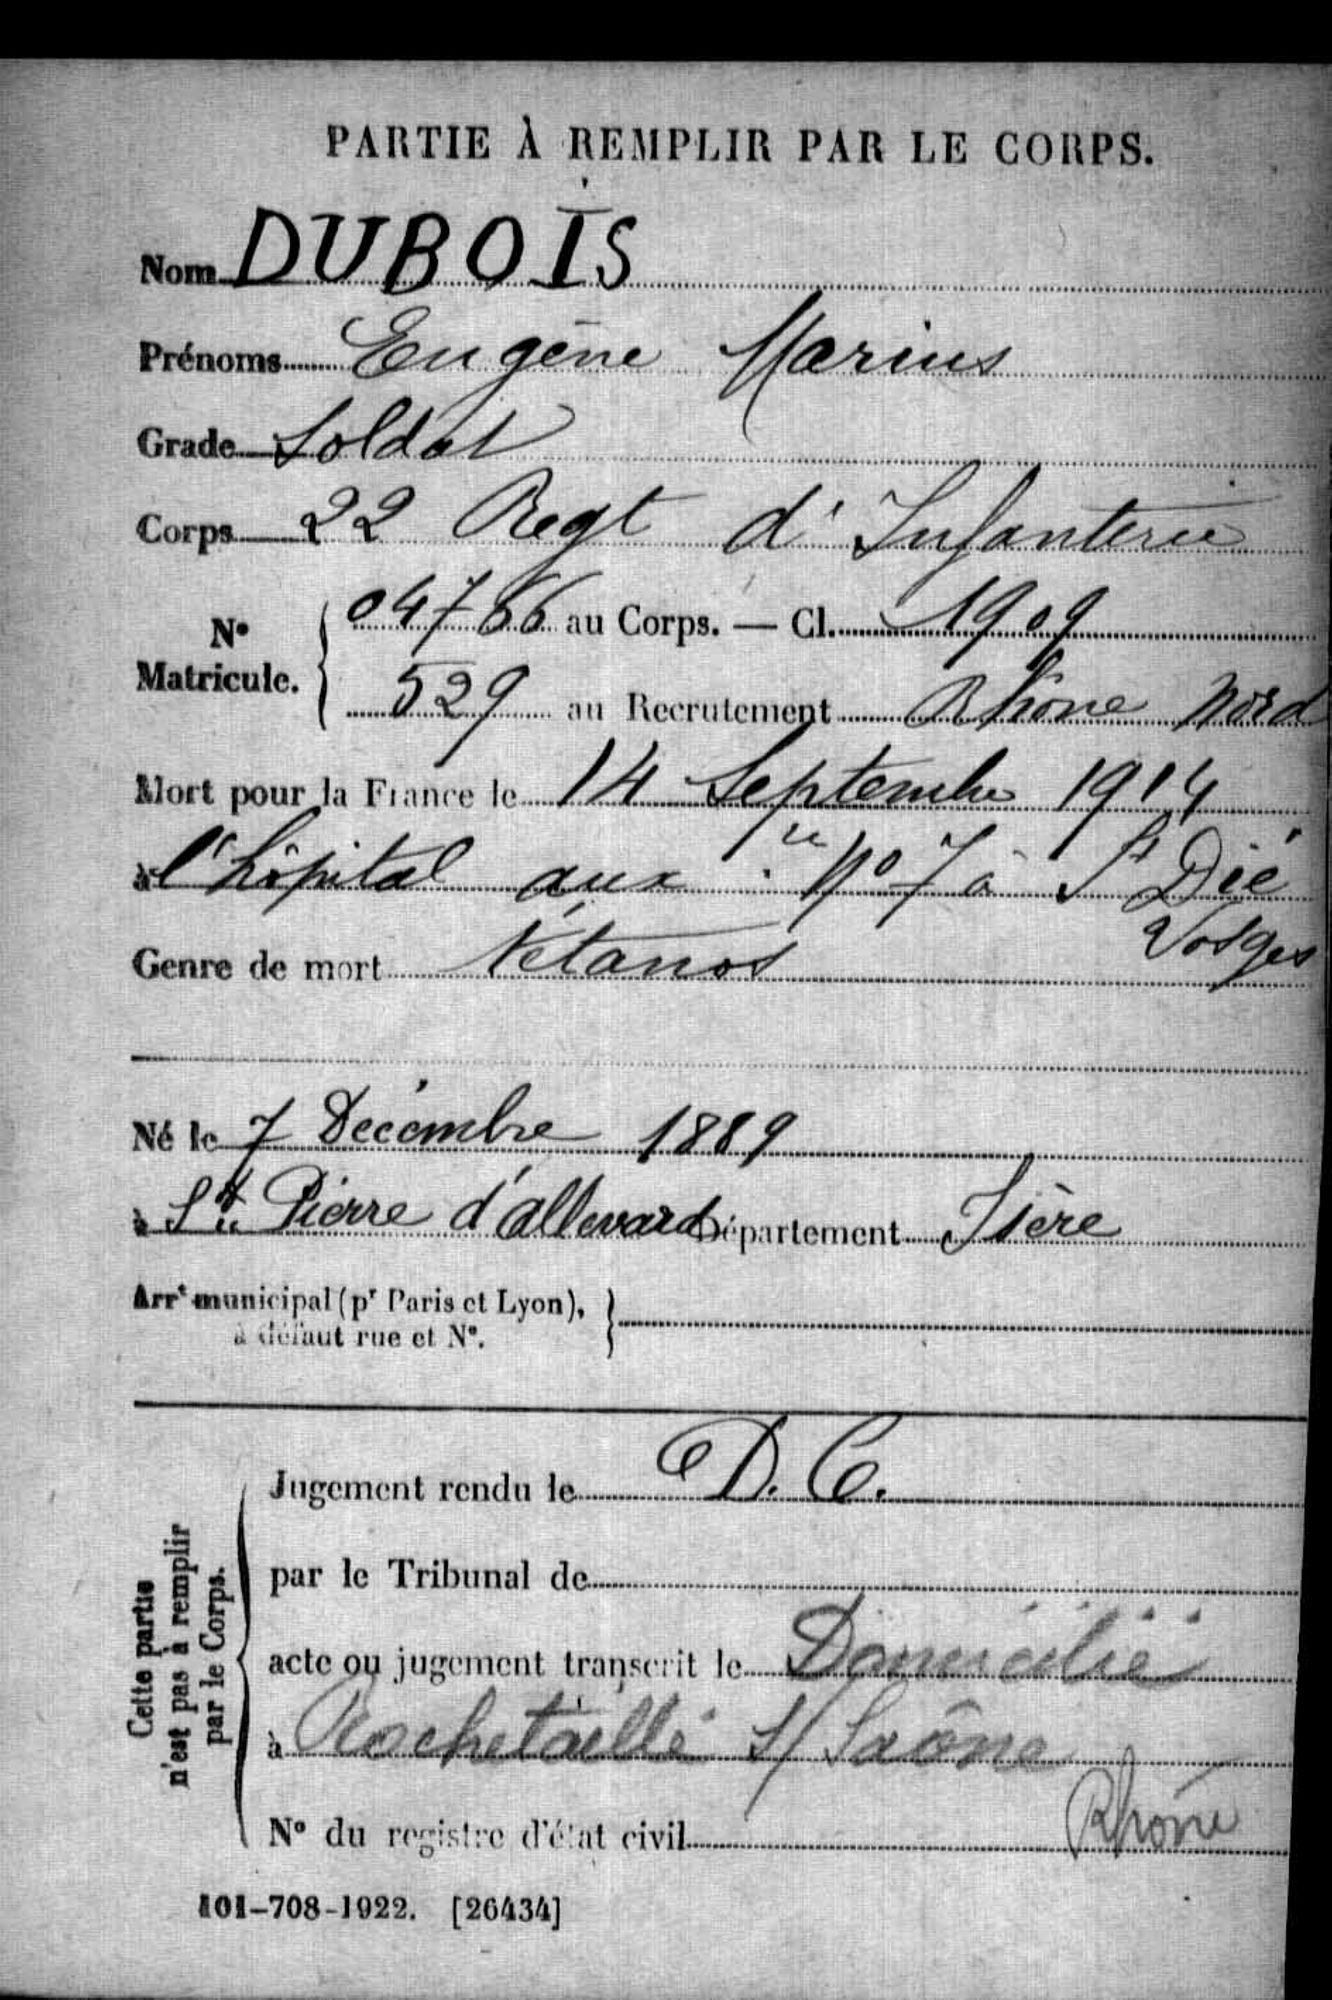 PARTIE À REMPLIR PAR LE CORPS.
Nom DUBOIS
Prénoms Eugène Marius
Grade Soldat
Corps 22 Regt d'Infanterie
N° Matricule. 04766 au Corps. — Cl. 1909
529 au Recrutement Rhône Nord
Mort pour la France le 14 Septembre 1914
à l'hôpital auxre N° 7 à St Dié
Vosges
Genre de mort tétanos
Né le 7 Décembre 1889
à St Pierre d'allevard Département Isère
Arrt municipal (pr Paris et Lyon),
à défaut rue et N°.
Cette partie
n'est pas à remplir
par le Corps.
Jugement rendu le D. C.
par le Tribunal de
acte ou jugement transcrit le Domicilié
à Rochetaillé S/ Saône
Rhône
N° du registre d'état civil
101-708-1922. [26434]